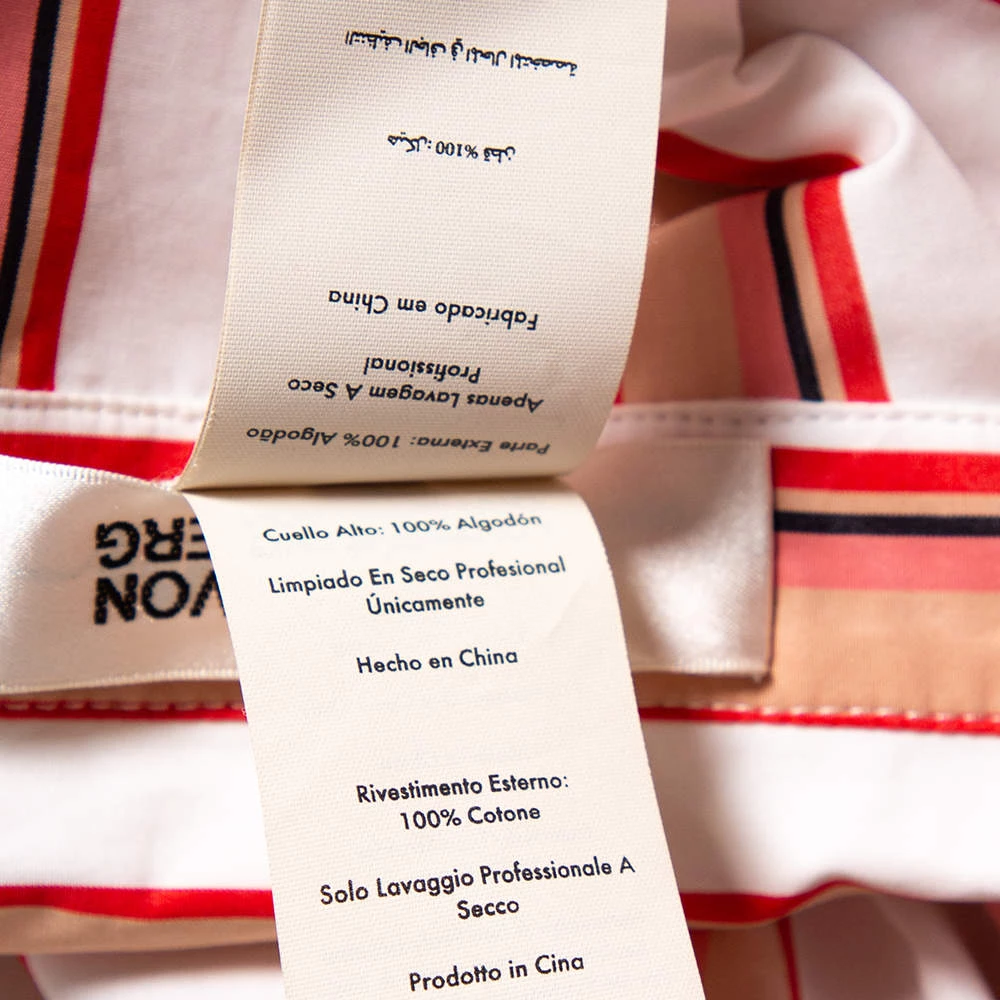 Parte Externa: 100% Algodão
Apenas Lavagem A Seco
Profissional
Fabricado em China
هيكل: 100% قطن
التنظيف الجاف في المحال المتخصصة
VON
ERG
Cuello Alto: 100% Algodón
Limpiado En Seco Profesional
Únicamente
Hecho en China
Rivestimento Esterno:
100% Cotone
Solo Lavaggio Professionale A
Secco
Prodotto in Cina